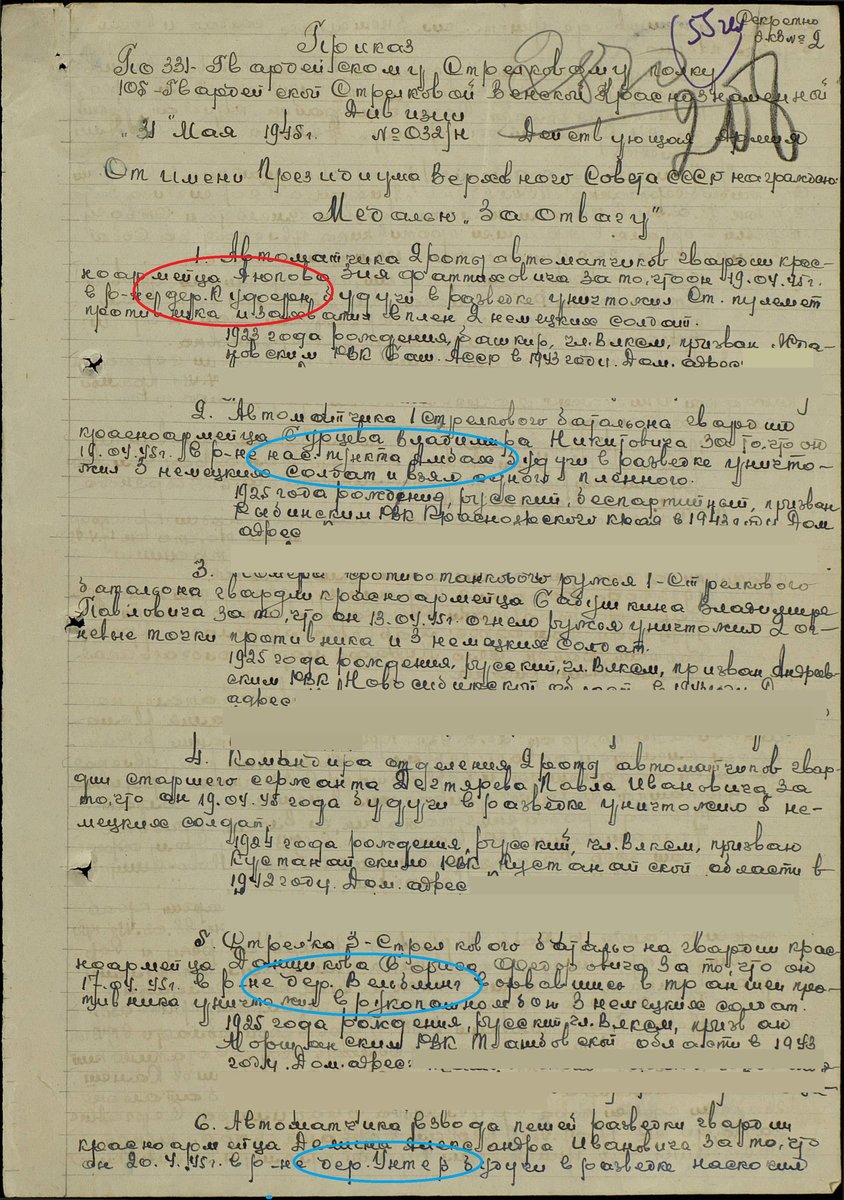 Секретно
экз № 2
55
Приказ
По 331-Гвардейскому Стрелковому полку
105-Гвардейской Стрелковой Венской Краснознаменной
Дивизии
"31" Мая 1945г. № 032/н Действующая Армия
От имени Президиума Верховного Совета СССР награждаю:
Медалью "За Отвагу"
1. Автоматчика 2 роты автоматчиков гвардии крас-
ноармейца Аюпова Зия Фаттаховича за то, что он 19.04.45г.
в р-не дер. будучи в разведке уничтожил Ст. пулемет
противника и захватил в плен 2 немецких солдат.
1923 года рождения, башкир, чл. ВЛКСМ, призван
РВК Баш. АССР в 1943 году. Дом. адрес
2. Автоматчика 1 стрелкового батальона гвардии
красноармейца Сурцева Владимира Никитовича за то, что он
19.04.45г. в р-не нас. пункта Амбах будучи в разведке уничто-
жил 3 немецких солдат и взял одного пленного.
1925 года рождения, русский, беспартийный, призван
Рыбинским РВК Красноярского края в 1943 г. Дом
адрес
3. Номера противотанкового ружья 1-Стрелкового
батальона гвардии красноармейца Сабушкина Владимира
Павловича за то, что он 13.04.45г. огнем ружья уничтожил 2 ог-
невые точки противника и 3 немецких солдат.
1925 года рождения, русский, чл. ВЛКСМ, призван Андреев-
ским РВК Новосибирской област. в
адрес
4. Командира отделения 2 роты автоматчиков гвар-
дии старшего сержанта Дегтярева Павла Ивановича за
то, что он 19.04.45 года будучи в разведке уничтожил 5 не-
мецких солдат.
1924 года рождения, русский, чл. ВЛКСМ, призван
Кустанайским РВК Кустанайской области в
1942 году. Дом. адрес
5. Стрелка 3-Стрелкового батальона гвардии крас-
ноармейца Данщикова Бориса Федоровича за то, что он
17.04.45г. в р-не дер. Вельблинг ворвавшись в траншеи про-
тивника уничтожил в рукопашном бою 3 немецких солдат.
1925 года рождения, русский, чл. ВЛКСМ, призван
Моршанским РВК Тамбовской области в 1943
году. Дом. адрес:
6. Автоматчика взвода пешей разведки гвардии
красноармейца Демина Александра Ивановича за то, что
он 20.4.45г. в р-не дер. Унтер будучи в разведке